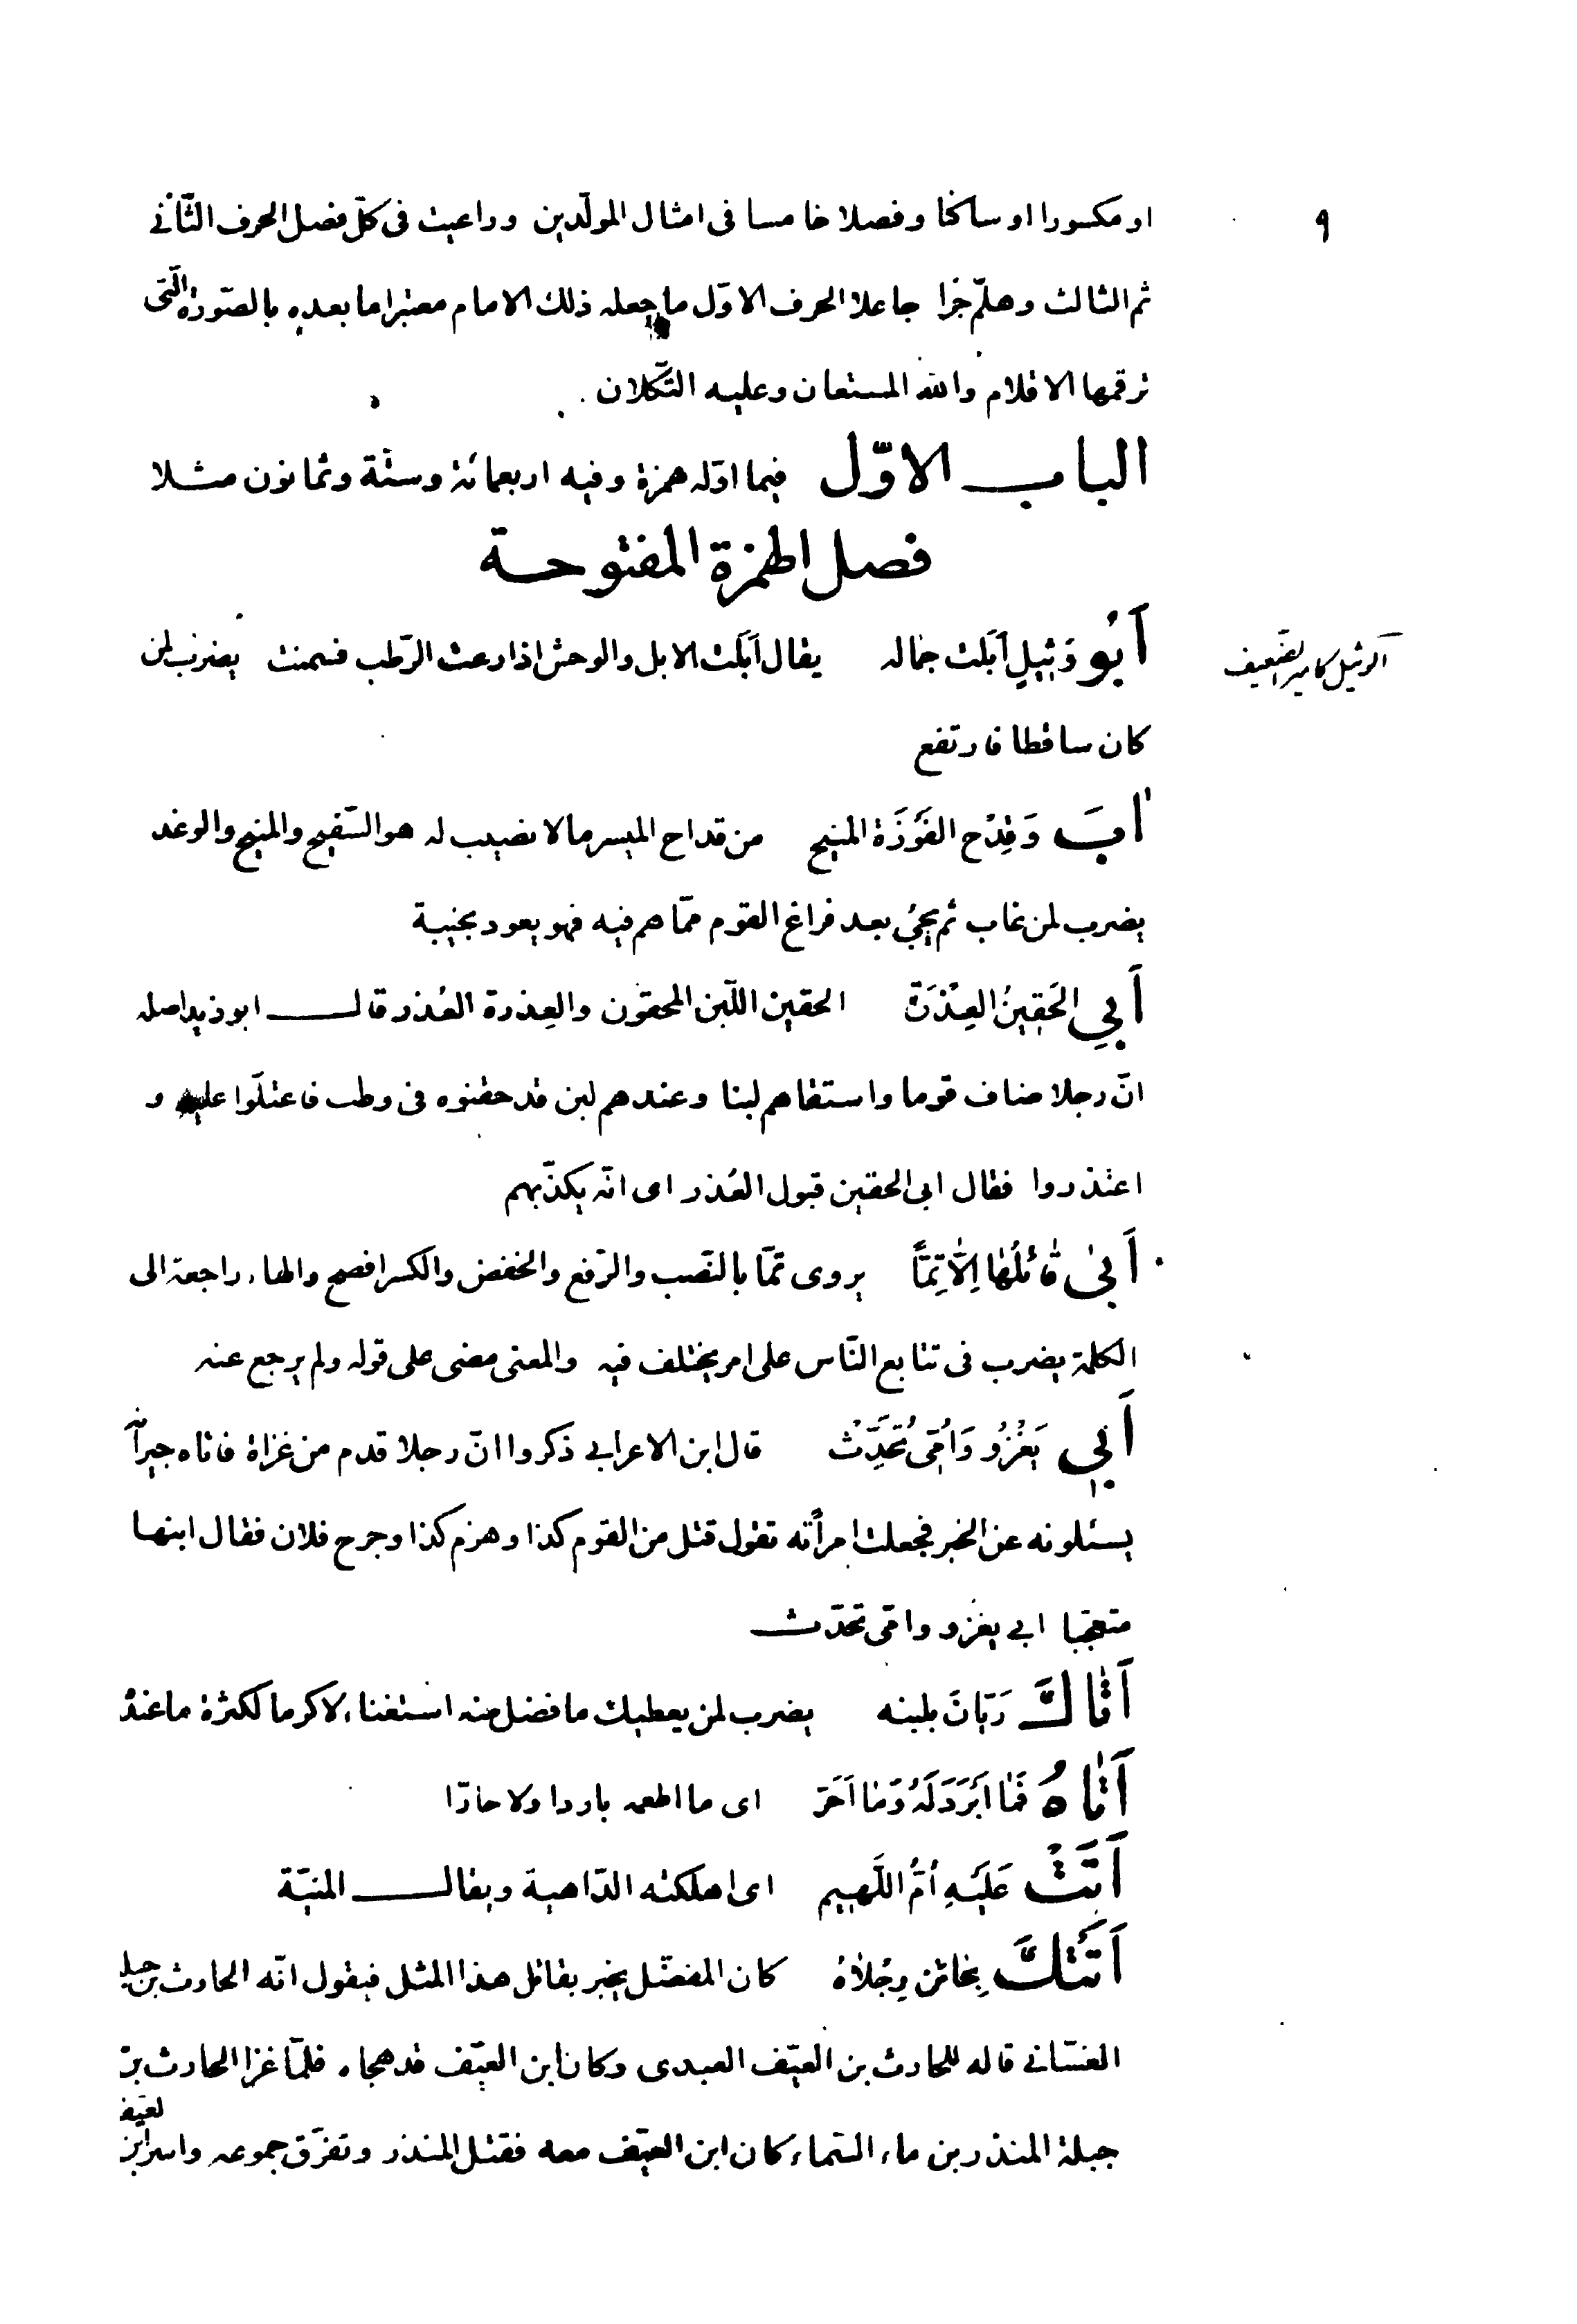 ٩
او مكسورا او ساكنا وفصلا خامسا فى امثال المولّدين وراعيت فى كلّ فصل الحرف الثّانى
ثم الثالث وهلمّ جرا جاعلا الحرف الاوّل ما جعله ذلك الامام معتبرا ما بعده بالصّورة الّتى
ترقمها الاقلام والله المستعان وعليه التّكلان
الباب الاوّل فيما اوّله همزة وفيه اربعمائة وستّة وثمانون مثلا
فصل الهمزة المفتوحة
أَبُو وَثِيلٍ أَبَلَت جماله يقال أبَلَت الابل والوحش اذا رعت الرّطب فسمنت يضرب لمن
الوثيل كامير الضّعيف
كان ساقطا فارتفع
آبَ وَقِدْح الفَوْزَة المنيح من قداح الميسر مالا نصيب له هو السّفيح والمنيح والوغد
يضرب لمن غاب ثم يجئ بعد فراغ القوم ممّا هم فيه فهو يعود بخيبة
أَبِي الحَقِينُ العِذْرَةَ الحقين اللّبن المحقون والعِذرة العُذر قال ابو زيد اصله
انّ رجلا ضاف قوما واستقاهم لبنا وعندهم لبن قد حقنوه فى وطب فاعتلّوا عليه و
اعتذروا فقال ابى الحقين قبول العُذر اى انّه يكذّبهم
أَبىٰ قَائلُهَا اِلّاَ تِمًّا يروى تمّا بالنّصب والرّفع والخفض والكسر افصح والهاء راجعة الى
الكلمة يضرب فى تتابع النّاس على امر يختلف فيه والمعنى مضى على قوله ولم يرجع عنه
أَبِي يَغْزُو وَاُمّى تُحَدِّثُ قال ابن الاعرابى ذكروا انّ رجلا قدم من غزاة فاتاه جيرانه
يسئلونه عن الخبر فجعلت امرأته تقول قتل من القوم كذا وهزم كذا وجرح فلان فقال ابنها
متعجّبا ابى يغزو وامّى تحدّث
أَتَاكَ رَيّانَ بلبنه يضرب لمن يعطيك ما فضل منه استغناء لا كرما لكثرة ما عنده
أَتَاهُ فَمَا اَبْرَدَ لَهُ وَمَا اَحَرَّ اى ما اطعمه باردا ولا حارّا
أَتَتْ عَلَيْهِ اُمُّ اللَّهِيمِ اى اهلكته الدّاهية ويقال المنيّة
أَتَتْكَ بِحَائنٍ رِجْلاَهُ كان المفضّل يخبر بقائل هذا المثل فيقول انّه الحارث بن جبلة
الغسّانى قاله للحارث بن العيّف العبدى وكان ابن العيّف قد هجاه فلمّا غزا الحارث بن
جبلة المنذر بن ماء السّماء كان ابن العيّف معه فقتل المنذر وتفرّق جموعه واسر ابن العيّف